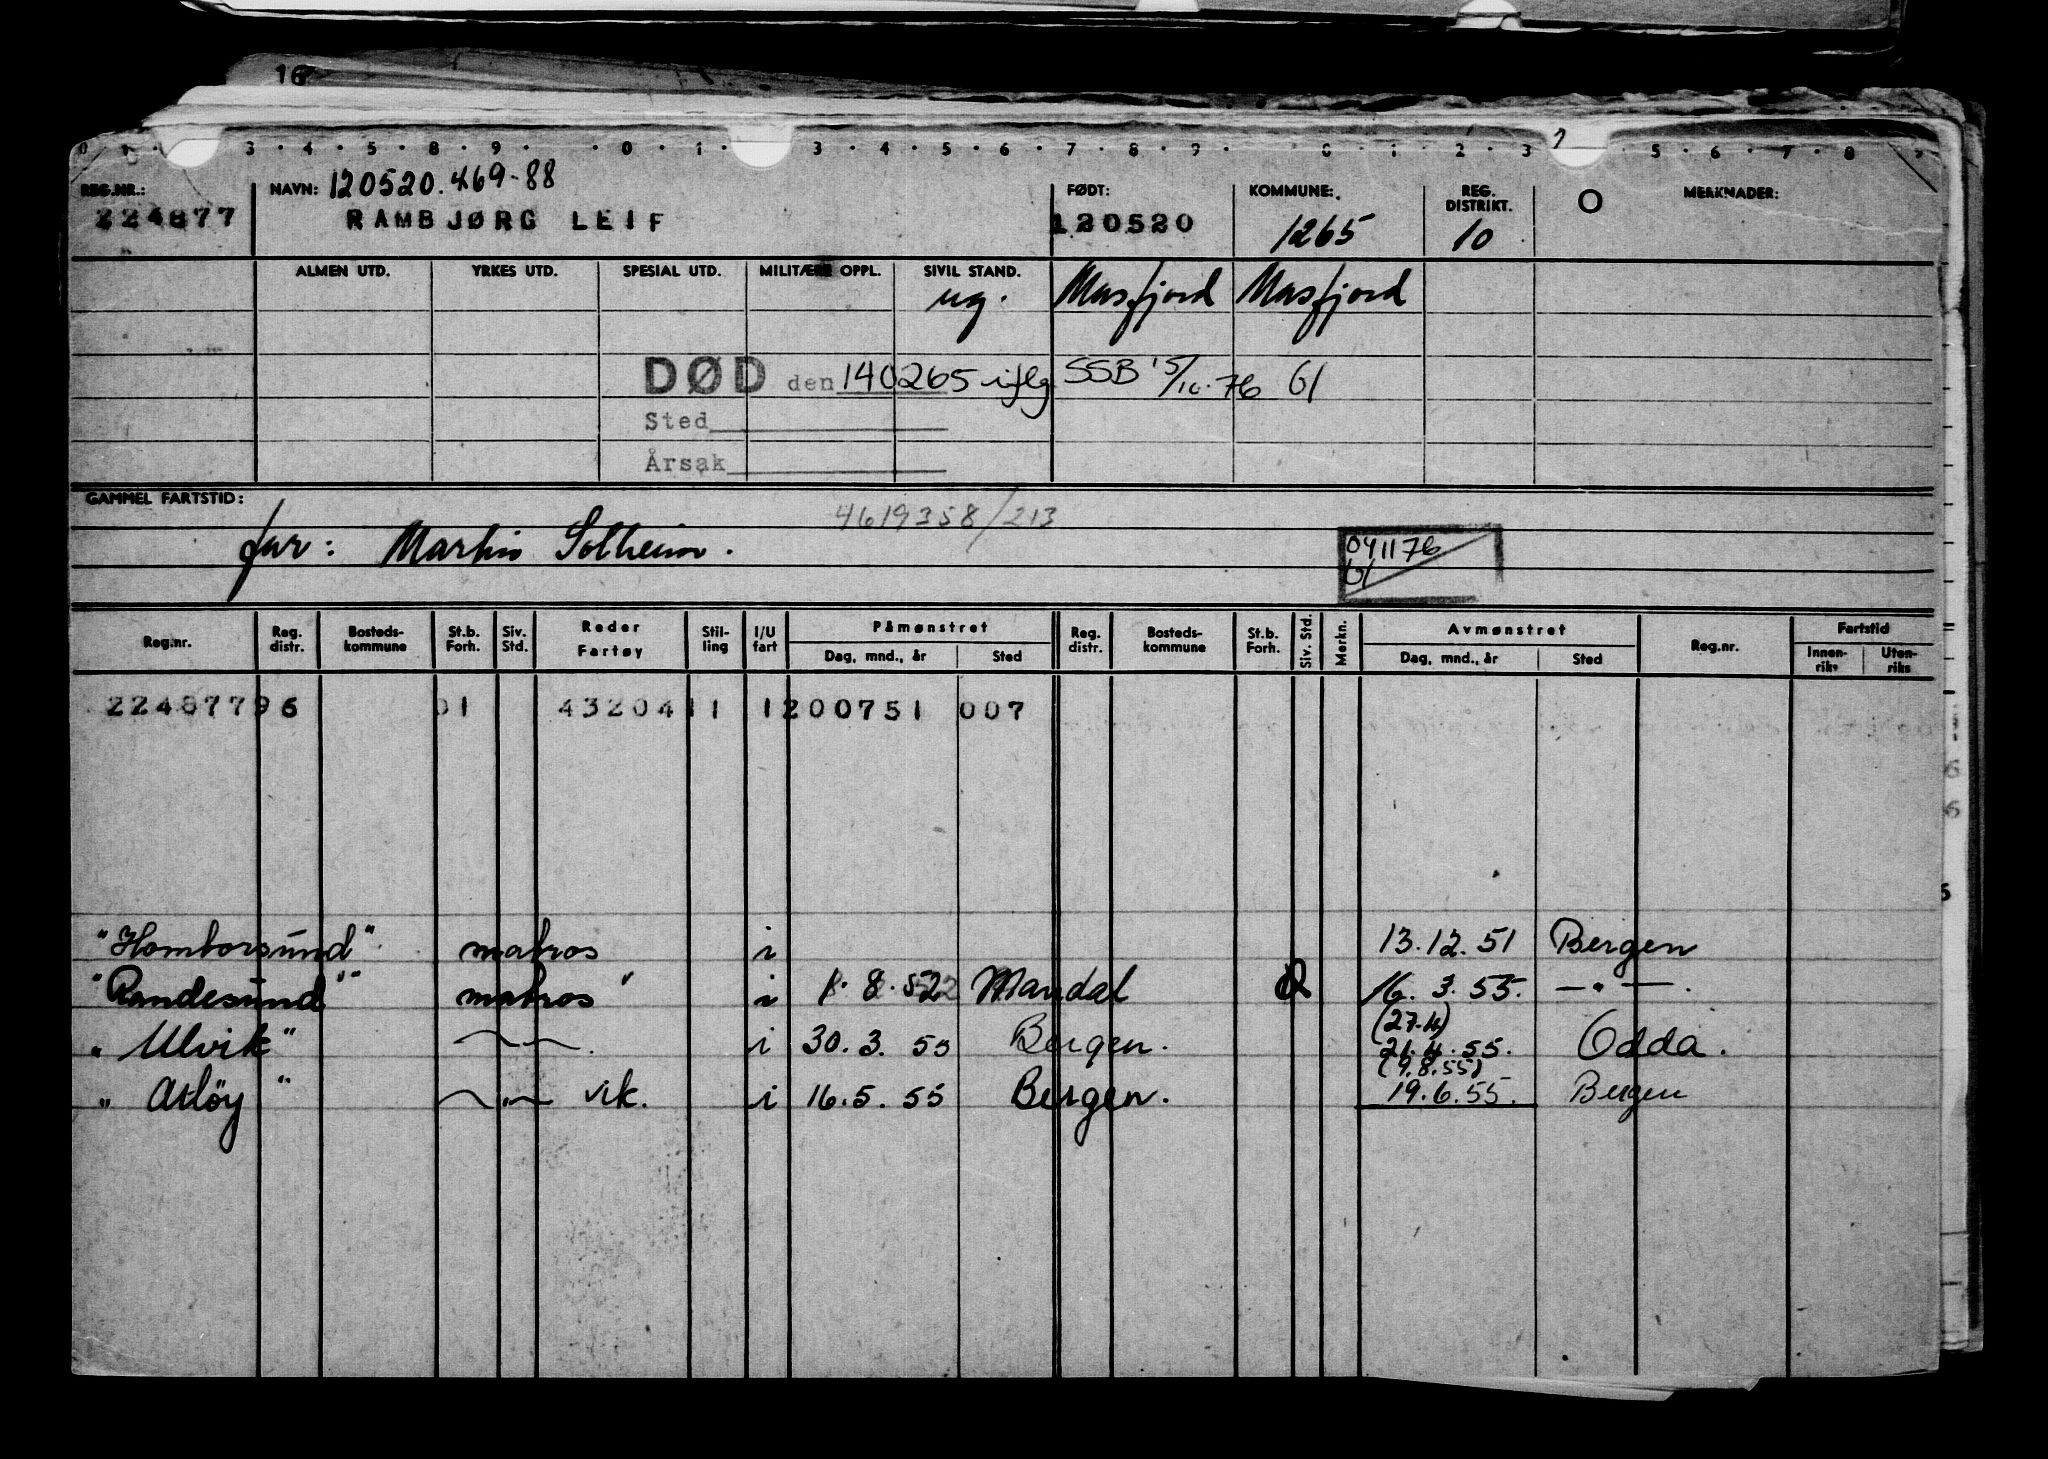 16
0 1 3 . 4 . 5 . 8 . 9 . . 0 . 1 . 3 . 4 . 5 . 6 . 7 . 8 . 9 . 0 . 1 . 2 . 3 5 . 6 . 7 . 8
REG.NR.: NAVN: 120520.469-88 FØDT: KOMMUNE: REG. DISTRIKT. O MERKNADER:
224877 RAMBJØRG LEIF 120520 1265 10
ALMEN UTD. YRKES UTD. SPESIAL UTD. MILITÆR OPPL. SIVIL STAND.
ug. Masfjord Masfjord
DØD den 140265 iflg SSB 15/10.76 Gl
Sted
Årsak
GAMMEL FARTSTID: 4619358/213
far: Martin Solheim. 041176
Gl
Reg.nr. Reg. distr. Bosteds-kommune St.b. Forh. Siv. Std. Reder Fartøy Stil-ling I/U fart Påmønstret Dag, mnd., år Sted Reg. distr. Bosteds-kommune St.b. Forh. Siv. Std. Merkn. Avmønstret Dag, mnd., år Sted Reg.nr. Fartstid Innen-riks Uten-riks
22487796 01 43204 11 1200751 007
"Homborsund" matros i 13.12.51 Bergen
"Randesund" matros i 1.8.52 Mandal 16.3.55. — " —.
(27.4)
"Ulvik" — " —. i 30.3.55 Bergen. 21.4.55. Odda.
(9.8.55)
"Atløy" — " — vik. i 16.5.55 Bergen. 19.6.55. Bergen